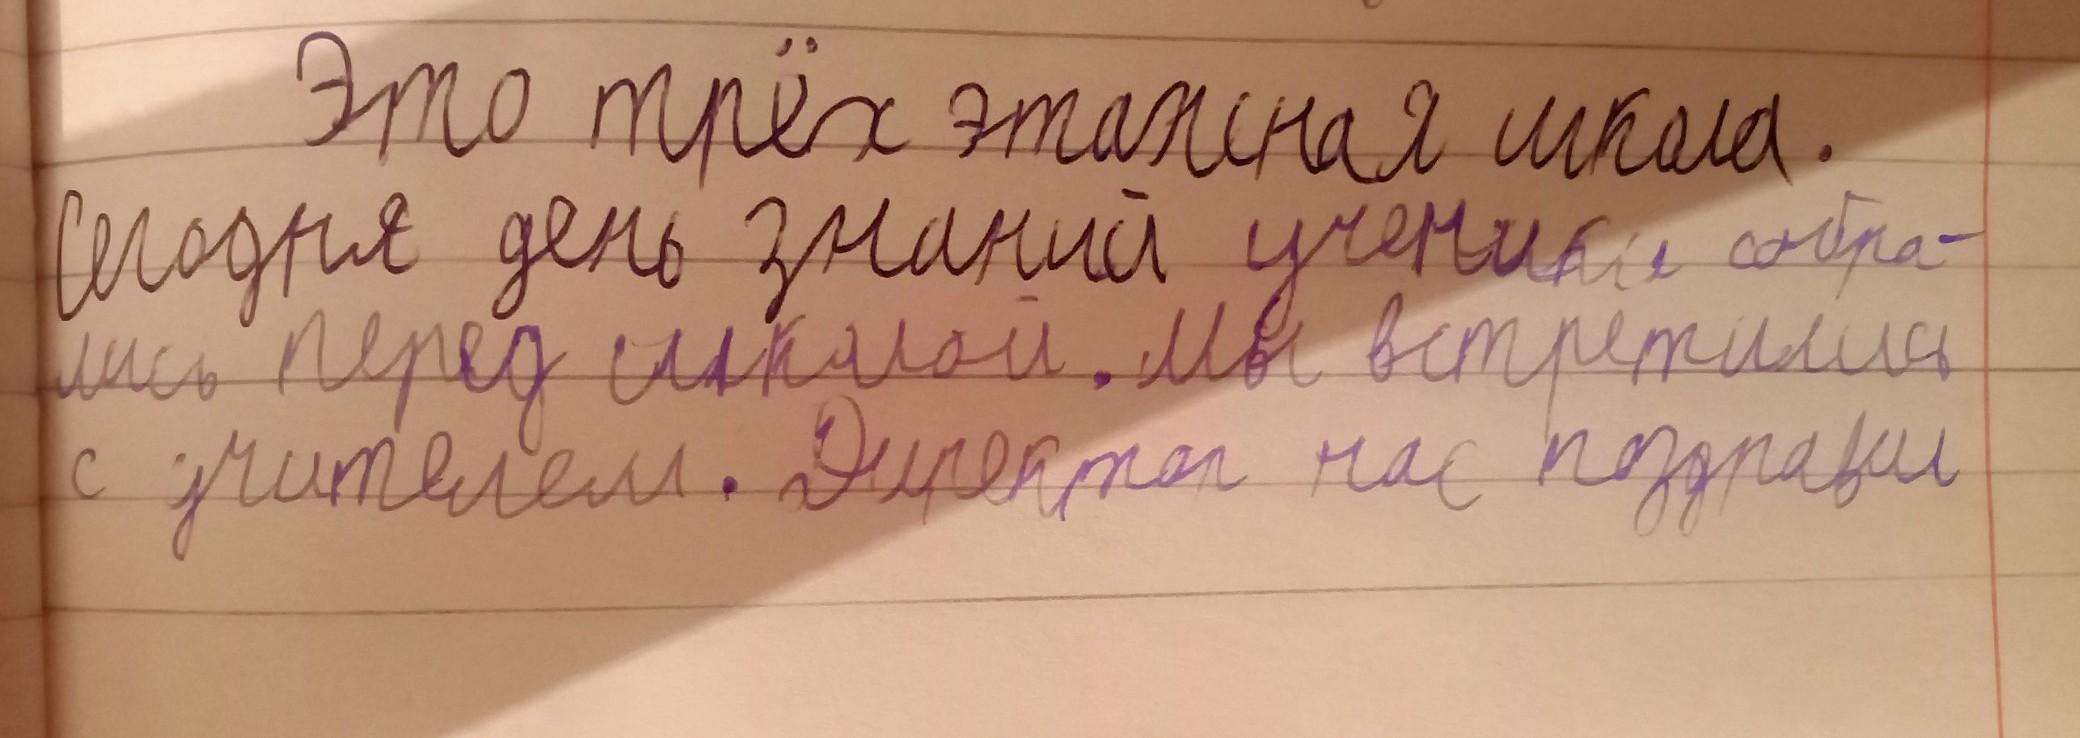 Это трёх этажная школа.
Сегодня день знаний ученики собра-
лись перед школой. Мы встретились
с учителем. Директор нас поздравил